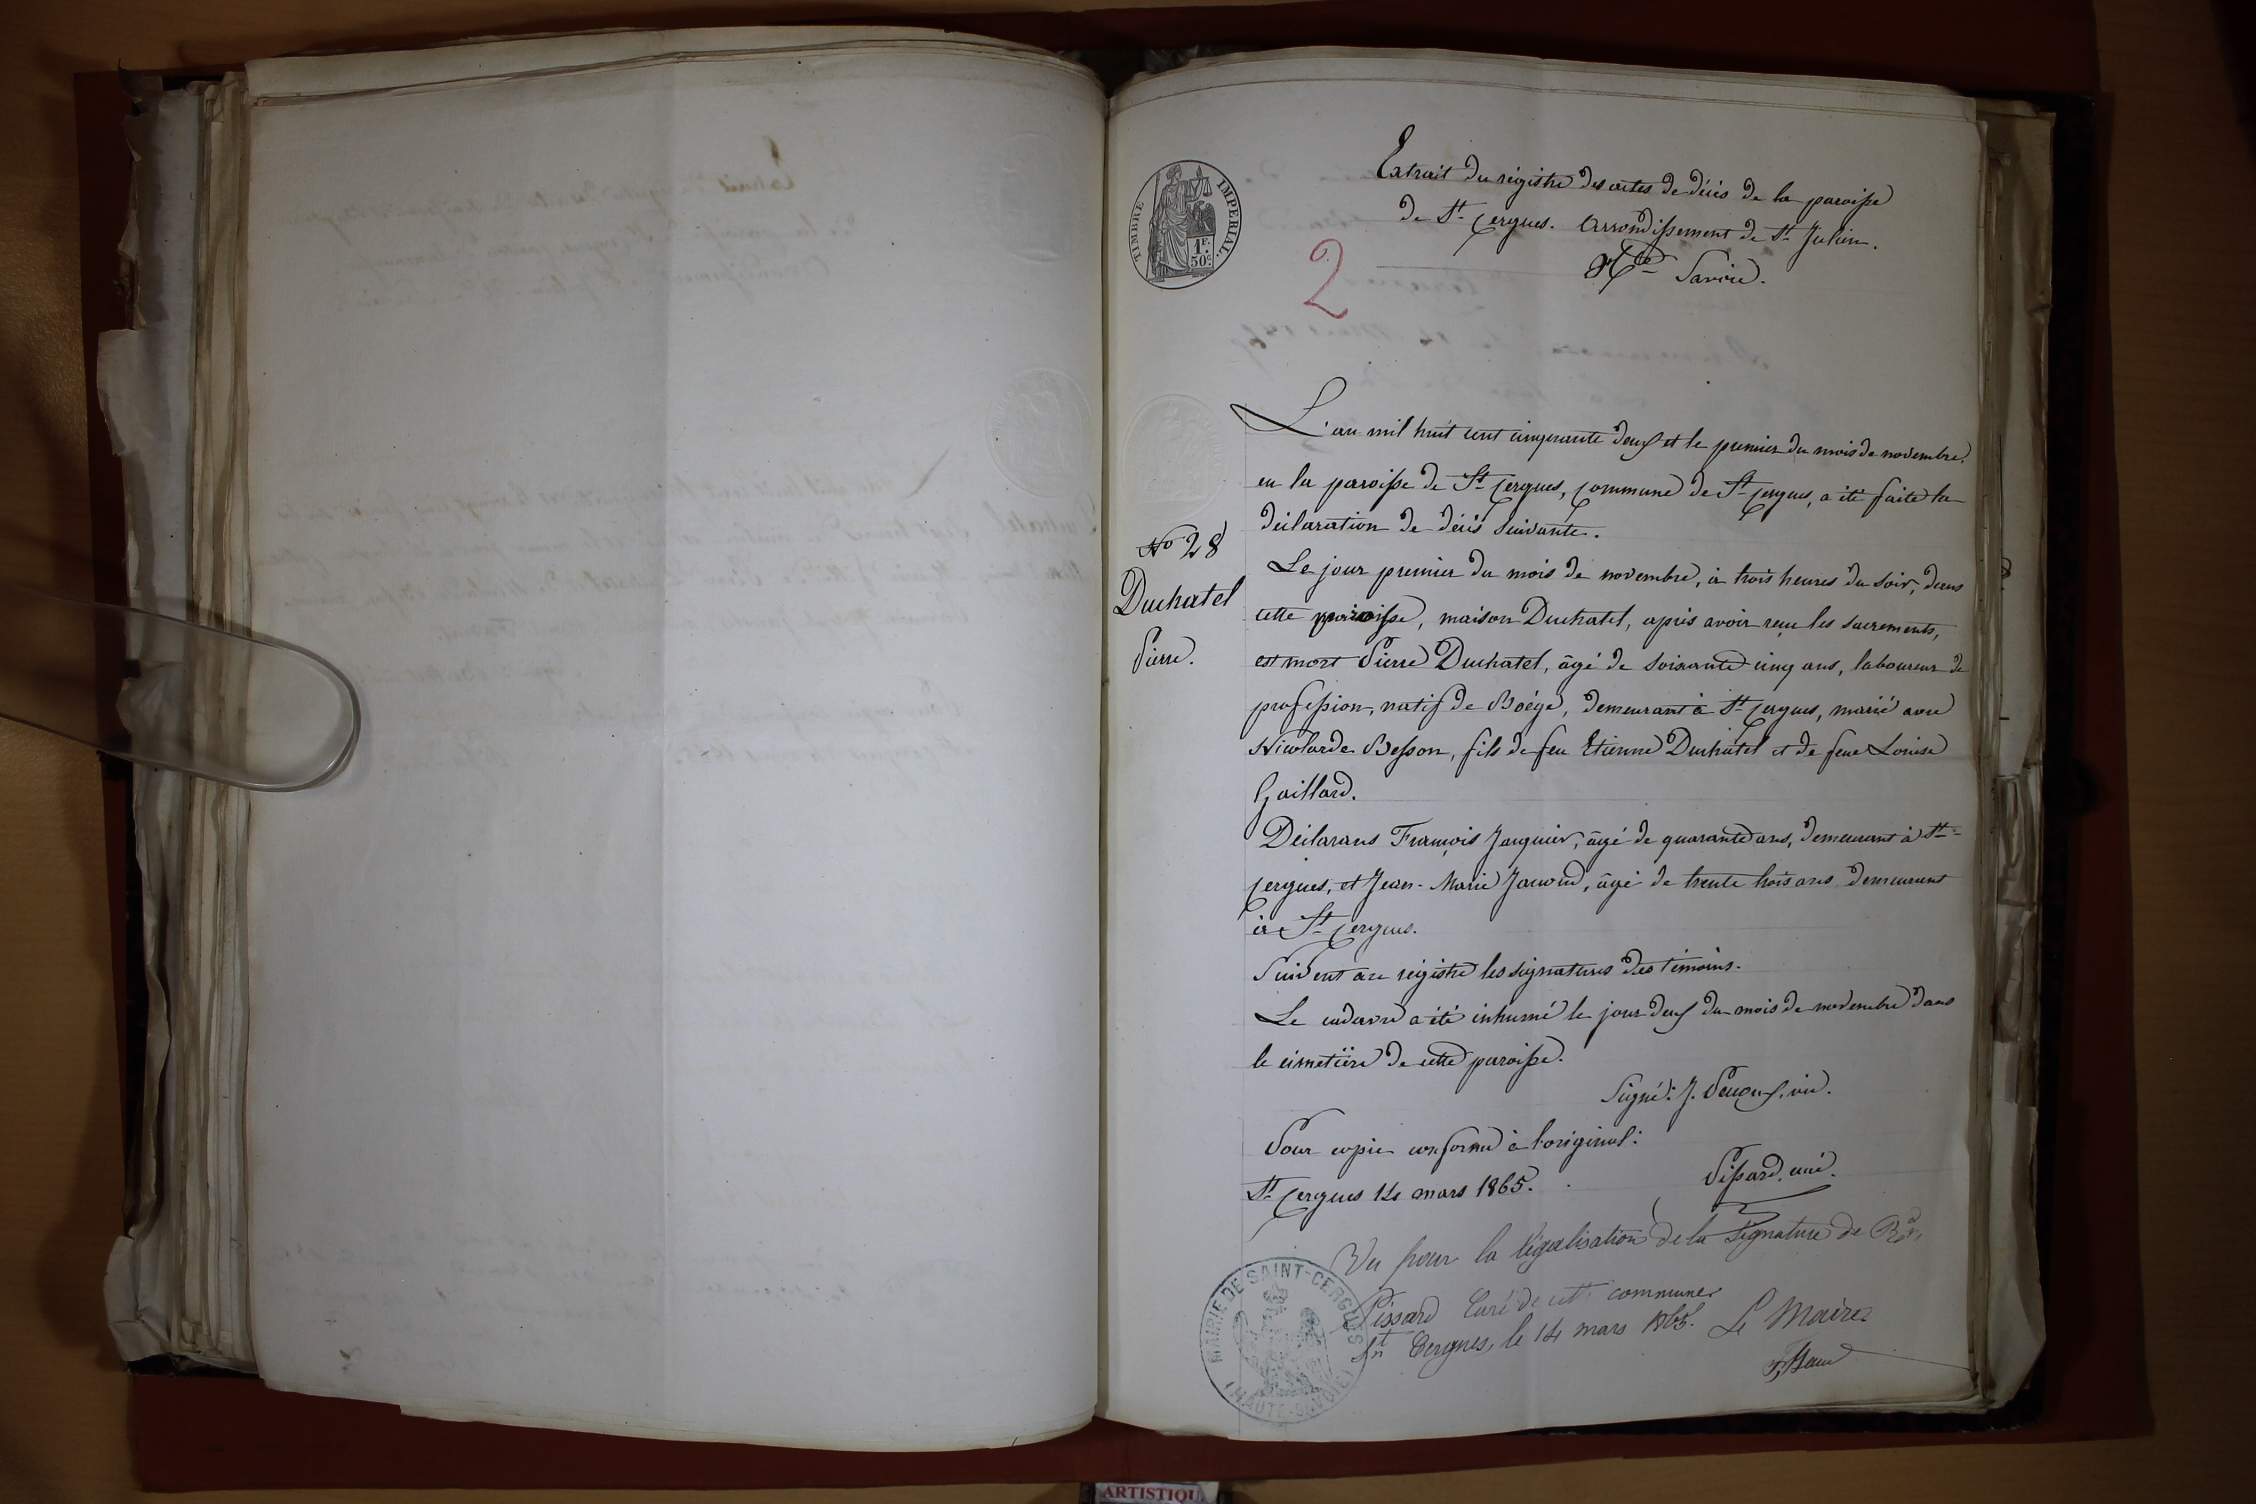 Extrait du régistre des actes de décès de la paroisse
de St Cergues. Arrondissement de St Julien.
Hte Savoie.
TIMBRE IMPERIAL.
1 F. 50 c.
2
L'an mil huit cent cinquante deux et le premier du mois de novembre.
en la paroisse de St Cergues, commune de St Cergues, a été faite la
déclaration de décès suivante.
No 28
Duchatel
Pierre.
Le jour premier du mois de novembre, à trois heures du soir, dans
cette paroisse, maison Duchatel, après avoir reçu les sacrements,
est mort Pierre Duchatel, âgé de soixante cinq ans, laboureur de
profession, natif de Boége, demeurant à St Cergues, marié avec
Nicolarde Besson, fils de feu Etienne Duchatel et de feue Louise
Gaillard.
Déclarans François Jacquier, âgé de quarante ans, demeurant à St
Cergues, et Jean-Marie, âgé de trente trois ans demeurant
à St Cergues.
Suivent au régistre les signatures des témoins.
Le cadavre a été inhumé le jour deux du mois de novembre dans
le cimetière de cette paroisse.
Signé: J. vic.
Pour copie conforme à l'original:
St Cergues 14 mars 1865.
Pissard, curé.
Vu pour la légalisation de la signature de Rd
Pissard Curé de cette commune
St Cergues, le 14 mars 1865. Le Maire
MAIRIE DE SAINT-CERGUES
(HAUTE-SAVOIE)
ARTISTIQU